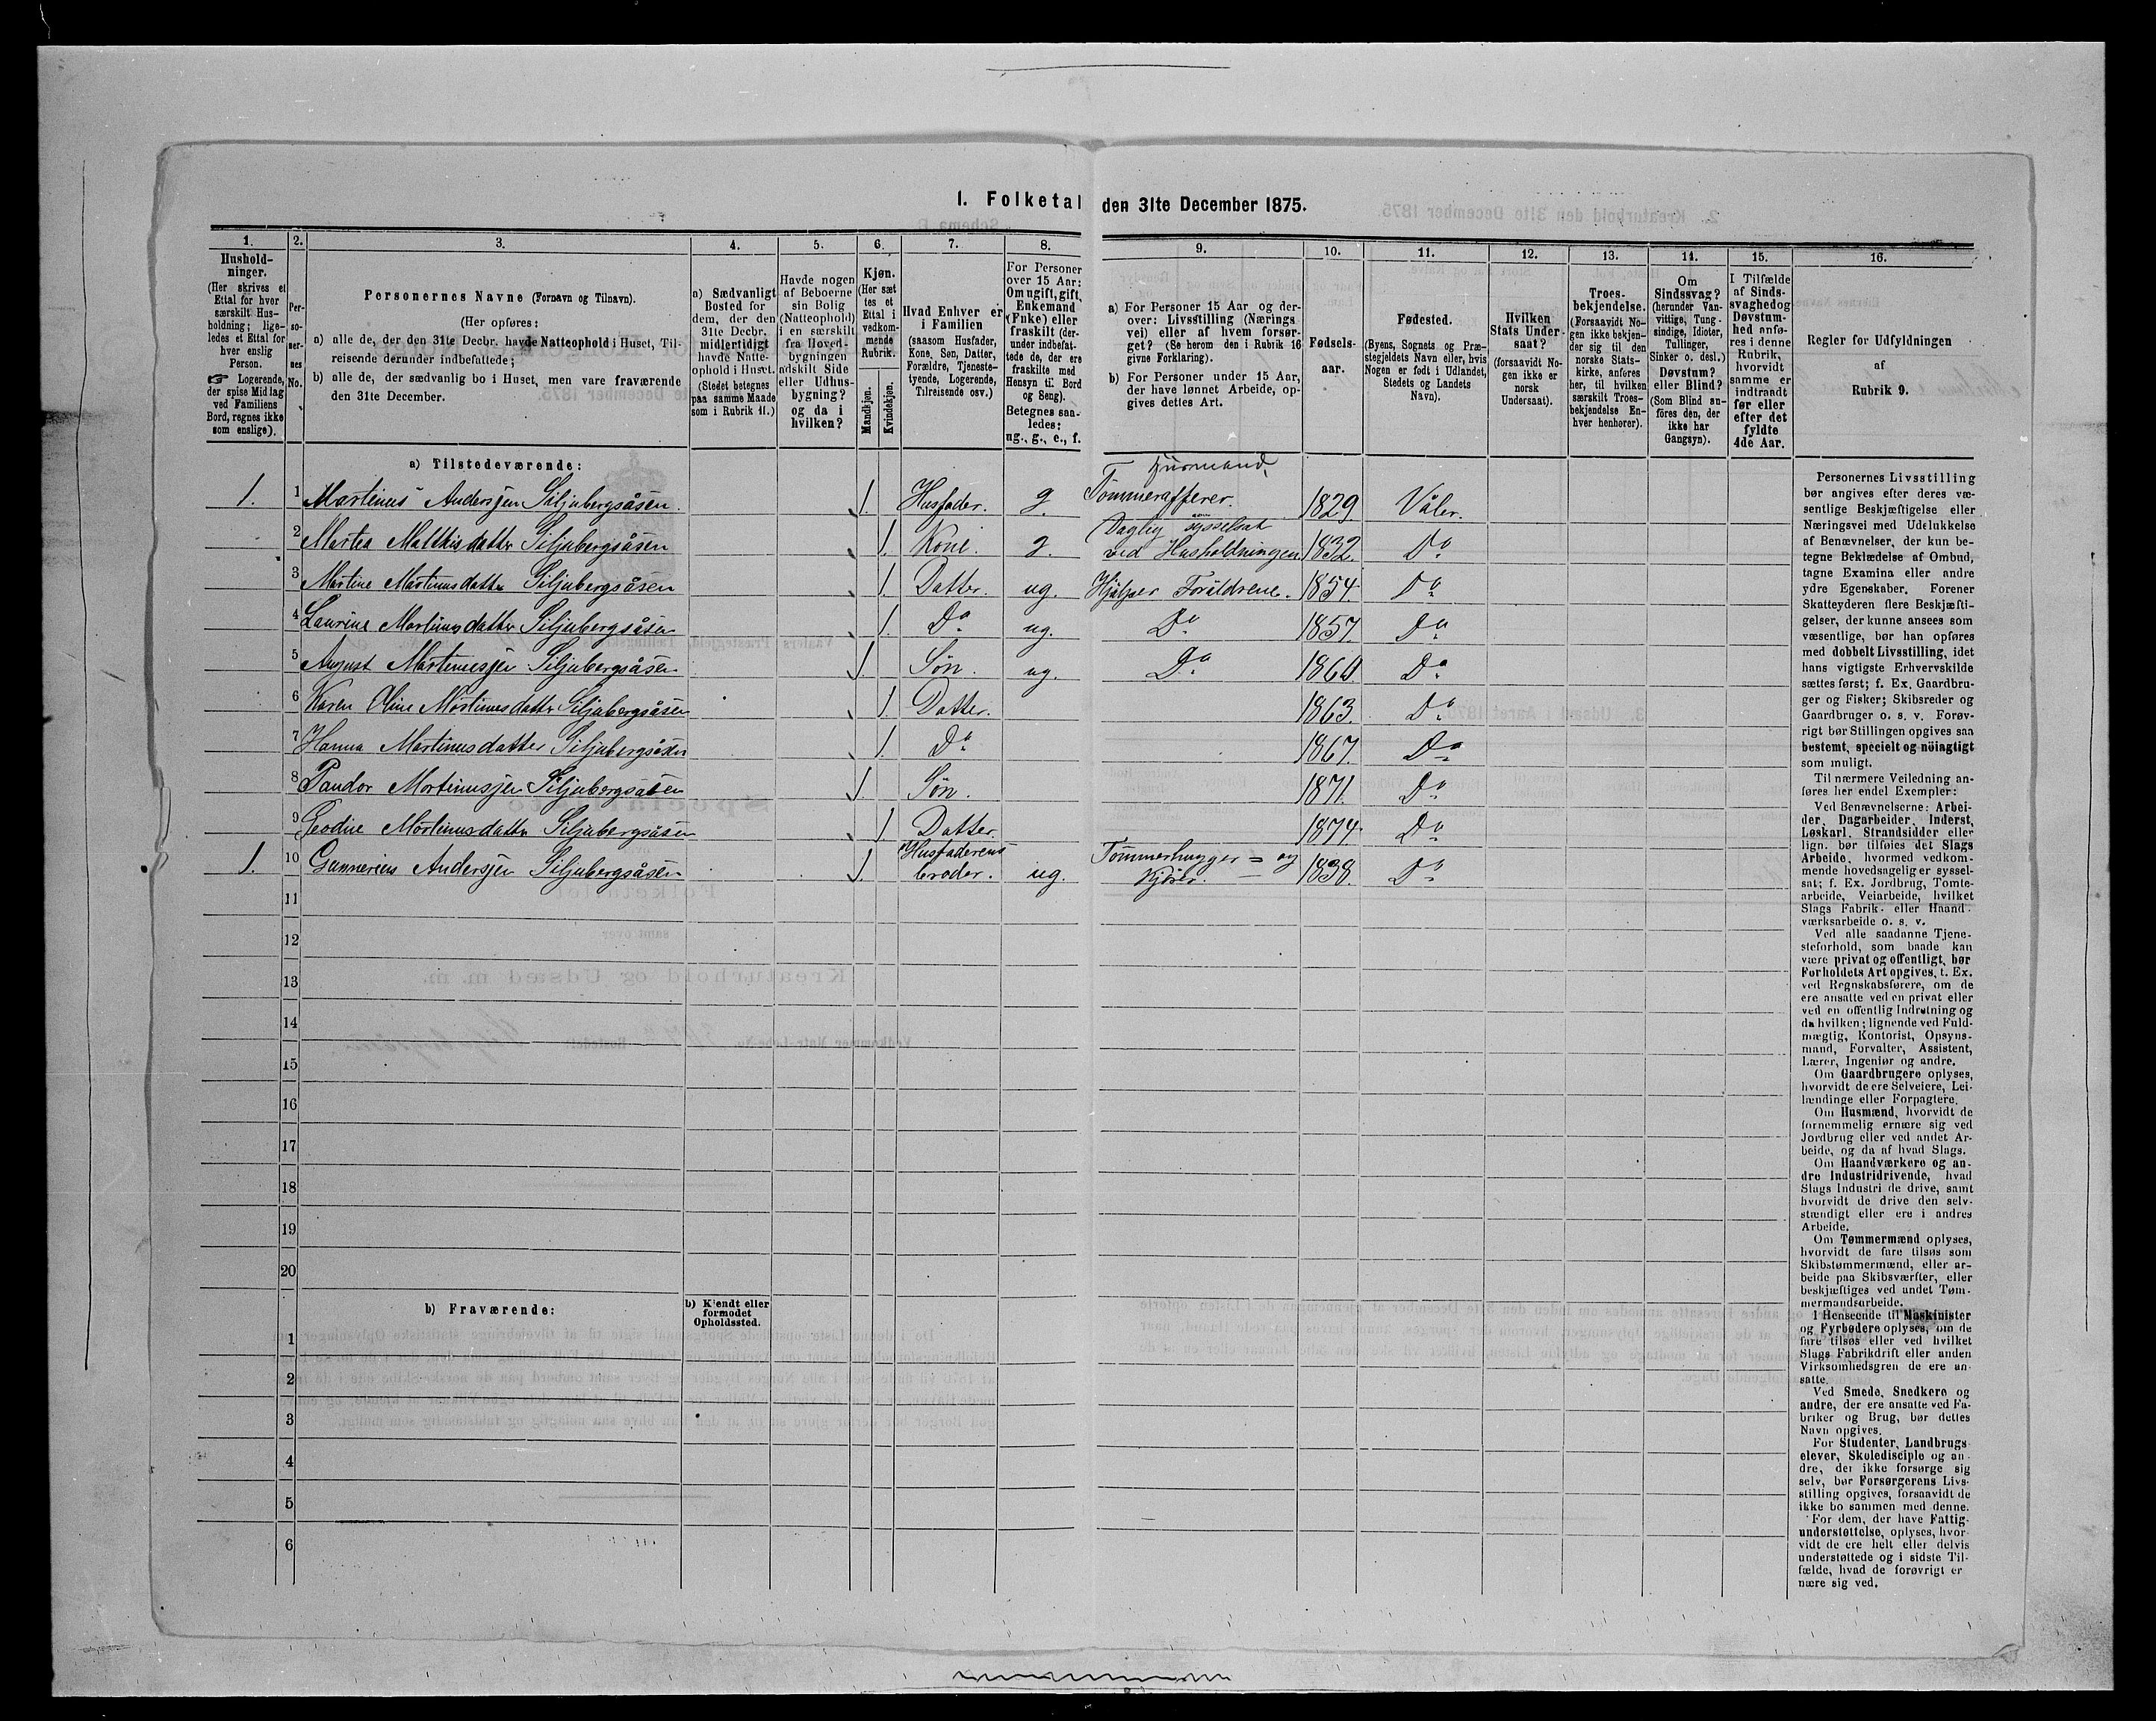 1. Folketal den 31te December 1875.
1. 2. 3. 4. 5. 6. 7. 8. 9. 10. 11. 12. 13. 14. 15. 16.
Hushold-
ninger.
(Her skrives et
Ettal for hver
særskilt Hus-
holdning; lige-
ledes et Ettal for
hver enslig
Person.
☞ Logerende,
der spise Middag
ved Familiens
Bord, regnes ikke
som enslige).
Per-
so-
ner-
nes
No.
Personernes Navne (Fornavn og Tilnavn).
(Her opføres:
a) alle de, der den 31te Decbr. havde Natteophold i Huset, Til-
reisende derunder indbefattede;
b) alle de, der sædvanlig bo i Huset, men vare fraværende
den 31te December.
a) Sædvanligt
Bosted for
dem, der den
31te Decbr.
midlertidigt
havde Natte-
ophold i Huset.
(Stedet betegnes
paa samme Maade
som i Rubrik 11.)
Havde nogen
af Beboerne
sin Bolig
(Natteophold)
i en særskilt
fra Hoved-
bygningen
adskilt Side
eller Udhus-
bygning?
og da i
hvilken?
Kjøn.
(Her sæt-
tes et
Ettal i
vedkom-
mende
Rubrik.
Mandkjøn.
Kvindekjøn.
Hvad Enhver er
i Familien
(saasom Husfader,
Kone, Søn, Datter,
Forældre, Tjeneste-
tyende, Logerende,
Tilreisende osv.)
For Personer
over 15 Aar:
Om ugift, gift,
Enkemand
(Enke) eller
fraskilt (der-
under indbefat-
tede de, der ere
fraskilte med
Hensyn til Bord
og Seng).
Betegnes saa-
ledes:
ug., g., e., f.
a) For Personer 15 Aar og der-
over: Livsstilling (Nærings-
vei) eller af hvem forsør-
get? (Se herom den i Rubrik 16
givne Forklaring).
b) For Personer under 15 Aar,
der have lønnet Arbeide, op-
gives dettes Art.
Fødsels-
aar.
Fødested.
(Byens, Sognets og Præ-
stegjeldets Navn eller, hvis
Nogen er født i Udlandet,
Stedets og Landets
Navn).
Hvilken
Stats Under-
saat?
(forsaavidt No-
gen ikke er
norsk
Undersaat).
Troes-
bekjendelse.
(Forsaavidt No-
gen ikke bekjen-
der sig til den
norske Stats-
kirke, anføres
her, til hvilken
særskilt Troes-
bekjendelse En-
hver henhører).
Om
Sindssvag?
(herunder Van-
vittige, Tung-
sindige, Idioter,
Tullinger,
Sinker o. desl.)
Døvstum?
eller Blind?
(Som Blind an-
føres den, der
ikke har
Gangsyn).
I Tilfælde
af Sinds-
svaghed og
Døvstum-
hed anfø-
res i denne
Rubrik,
hvorvidt
samme er
indtraadt
før eller
efter det
fyldte
4de Aar.
Regler for Udfyldningen
af
Rubrik 9.
a) Tilstedeværende:
Husmand,
1. 1 Martinus Andersen Siljubergsåsen. 1. Husfader. g. Tømmerafferer. 1829. Våler.
Daglig som sysselsat
2 Martea Matthisdatter Siljubergsåsen 1. Kone. g. ved Husholdningen 1832. Do
3 Martine Martinusdatter Siljubergsåsen 1. Datter. ug. Hjælper Forældrene. 1854. Do
4 Laurine Martinusdatter Siljubergsåsen 1. Do ug. Do 1857. Do
5 August Martinussen Siljubergsåsen 1. Søn. ug. Do 1860. Do
6 Karen Oline Martinusdatter Siljubergsåsen 1. Datter. 1863. Do
7 Hanna Martinusdatter Siljubergsåsen 1. Do 1867. Do
8 Pandor Martinussen Siljubergsåsen 1. Søn. 1871. Do
9 Martinusdatter Siljubergsåsen 1. Datter. 1874. Do
1. 10 Gunnerius Andersen Siljubergsåsen 1. Husfaderens broder. ug. Tømmerhugger= og Kjører. 1838. Do
11
12
13
14
15
16
17
18
19
20
b) Fraværende:
b) Kjendt eller
formodet
Opholdssted.
1
2
3
4
5
6
Personernes Livsstilling
bør angives efter deres væ-
sentlige Beskjæftigelse eller
Næringsvei med Udelukkelse
af Benævnelser, der kun be-
tegne Beklædelse af Ombud,
tagne Examina eller andre
ydre Egenskaber. Forener
Skatteyderen flere Beskjæfti-
gelser, der kunne ansees som
væsentlige, bør han opføres
med dobbelt Livsstilling, idet
hans vigtigste Erhvervskilde
sættes først; f. Ex. Gaardbru-
ger og Fisker; Skibsreder og
Gaardbruger o. s. v. Forøv-
rigt bør Stillingen opgives saa
bestemt, specielt og nöiagtigt
som muligt.
Til nærmere Veiledning an-
føres her endel Exempler:
Ved Benævnelserne: Arbei-
der, Dagarbeider, Inderst,
Løskarl, Strandsidder eller
lign. bør tilføies det Slags
Arbeide, hvormed vedkom-
mende hovedsagelig er syssel-
sat; f. Ex. Jordbrug, Tomte-
arbeide, Veiarbeide, hvilket
Slags Fabrik- eller Haand-
værksarbeide o. s. v.
Ved alle saadanne Tjene-
steforhold, som baade kan
være privat og offentligt, bør
Forholdets Art opgives, t. Ex.
ved Regnskabsførere, om de
ere ansatte ved en privat eller
ved en offentlig Indretning og
da hvilken; lignende ved Fuld-
mægtig, Kontorist, Opsyns-
mand, Forvalter, Assistent,
Lærer, Ingeniør og andre.
Om Gaardbrugere oplyses,
hvorvidt de ere Selveiere, Lei-
lændinge eller Forpagtere.
Om Husmænd, hvorvidt de
fornemmelig ernære sig ved
Jordbrug eller ved andet Ar-
beide, og da af hvad Slags.
Om Haandværkere og an-
dre Industridrivende, hvad
Slags Industri de drive, samt
hvorvidt de drive den selv-
stændigt eller ere i andres
Arbeide.
Om Tømmermænd oplyses,
hvorvidt de fare tilsøs som
Skibstømmermænd, eller ar-
beide paa Skibsværfter, eller
beskjæftiges ved andet Tøm-
mermandsarbeide.
I Henseende til Maskinister
og Fyrbødere oplyses, om de
fare tilsøs eller ved hvilket
Slags Fabrikdrift eller anden
Virksomhedsgren de ere an-
satte.
Ved Smede, Snedkere og
andre, der ere ansatte ved Fa-
briker og Brug, bør dettes
Navn opgives.
For Studenter, Landbrugs-
elever, Skoledisciple og an-
dre, der ikke forsørge sig
selv, bør Forsørgerens Livs-
stilling opgives, forsaavidt de
ikke bo sammen med denne.
For dem, der have Fattig-
understøttelse, oplyses, hvor-
vidt de ere helt eller delvis
understøttede og i sidste Til-
fælde, hvad de forøvrigt er-
nære sig ved.